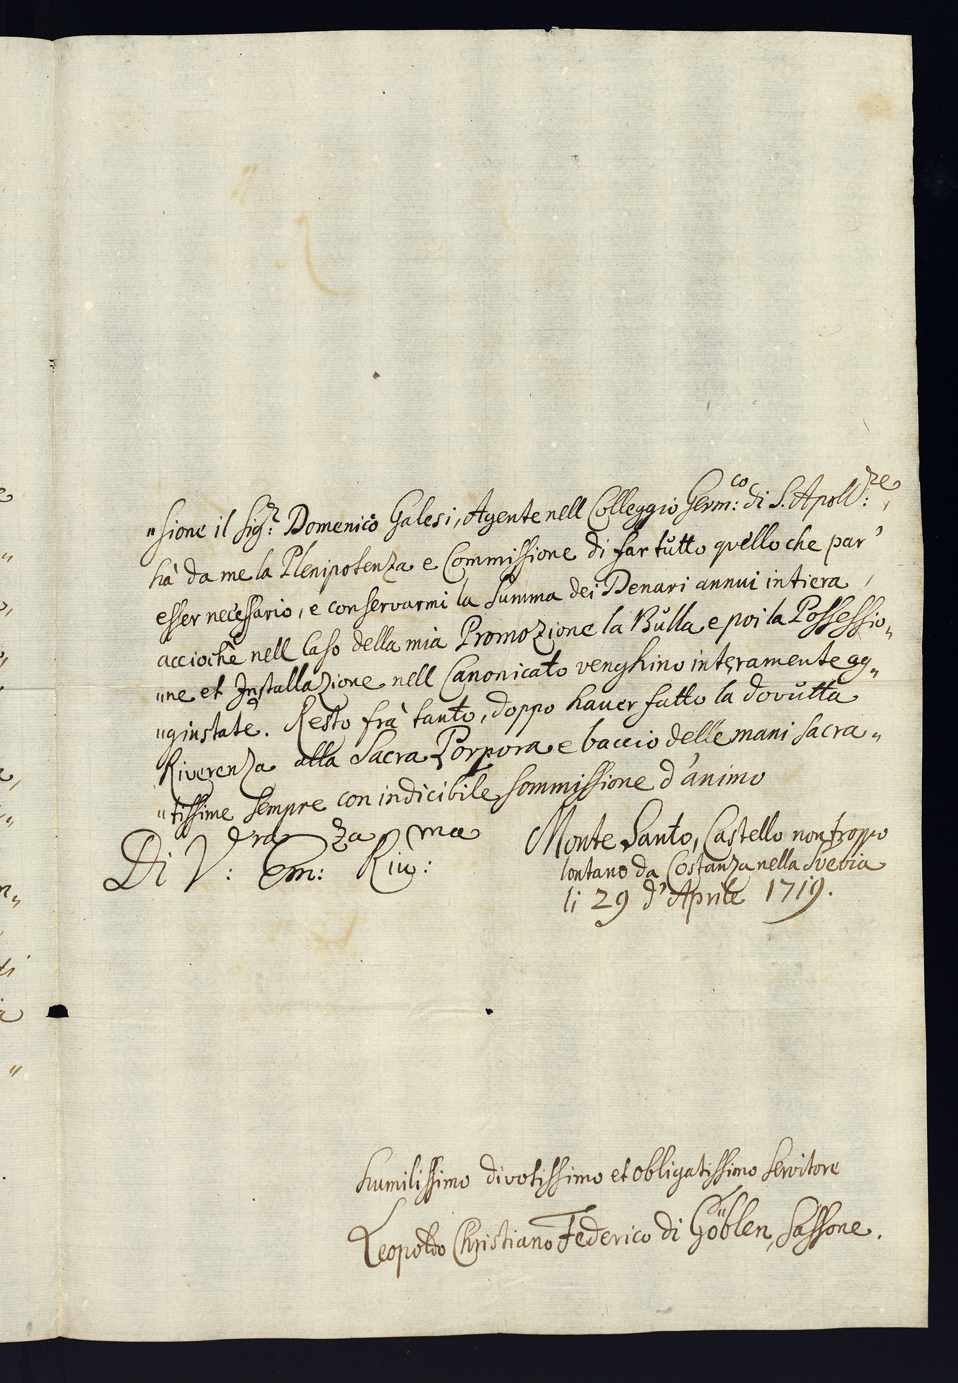 „sione il Sig.r Domenico Galesi, Agente nell Colleggio Germ:co di S. Apoll:re,
hà da me la Plenipotenza e Commissione di far tutto quello che par'
esser necessario, e conservarmi la Summa dei Denari annui intiera,
acciochè nell Caso della mia Promozione la Bulla e poi la Possessio„
„ne et Installazione nell Canonicato venghino interamente ag„
„giustate. Resto frà tanto, doppo haver fatto la dovutta
Riverenza alla Sacra Porpora e baccio delle mani sacra„
„tissime sempre con indicibile sommissione d'animo
Di V:ra Em:za Riv:ma
Monte Santo, Castello non troppo
lontano da Costanza nella Svebia
li 29 d'Aprile 1719.
humilissimo divotissimo et obligatissimo servitore
Leopoldo Christiano Federico di Göblen, Sassone.